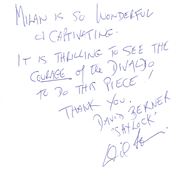 MILAN IS SO WONDERFUL
& CAPTIVATING.
IT IS THRILLING TO SEE THE
COURAGE of the DIVALDO
TO DO THIS PIECE!
THANK YOU.
DAVID BERNER
'SAYLOCK'